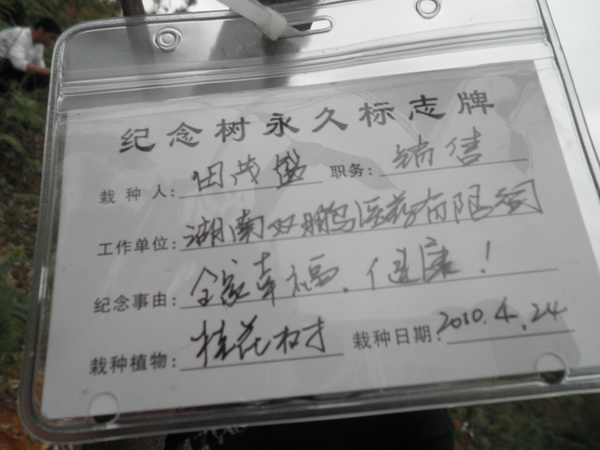 纪念树永久标志牌
栽种人:田茂盛 职务:销售
工作单位:湖南双鹏医药有限公司
纪念事由:全家幸福、健康!
栽种植物:桂花树 栽种日期:2010.4.24